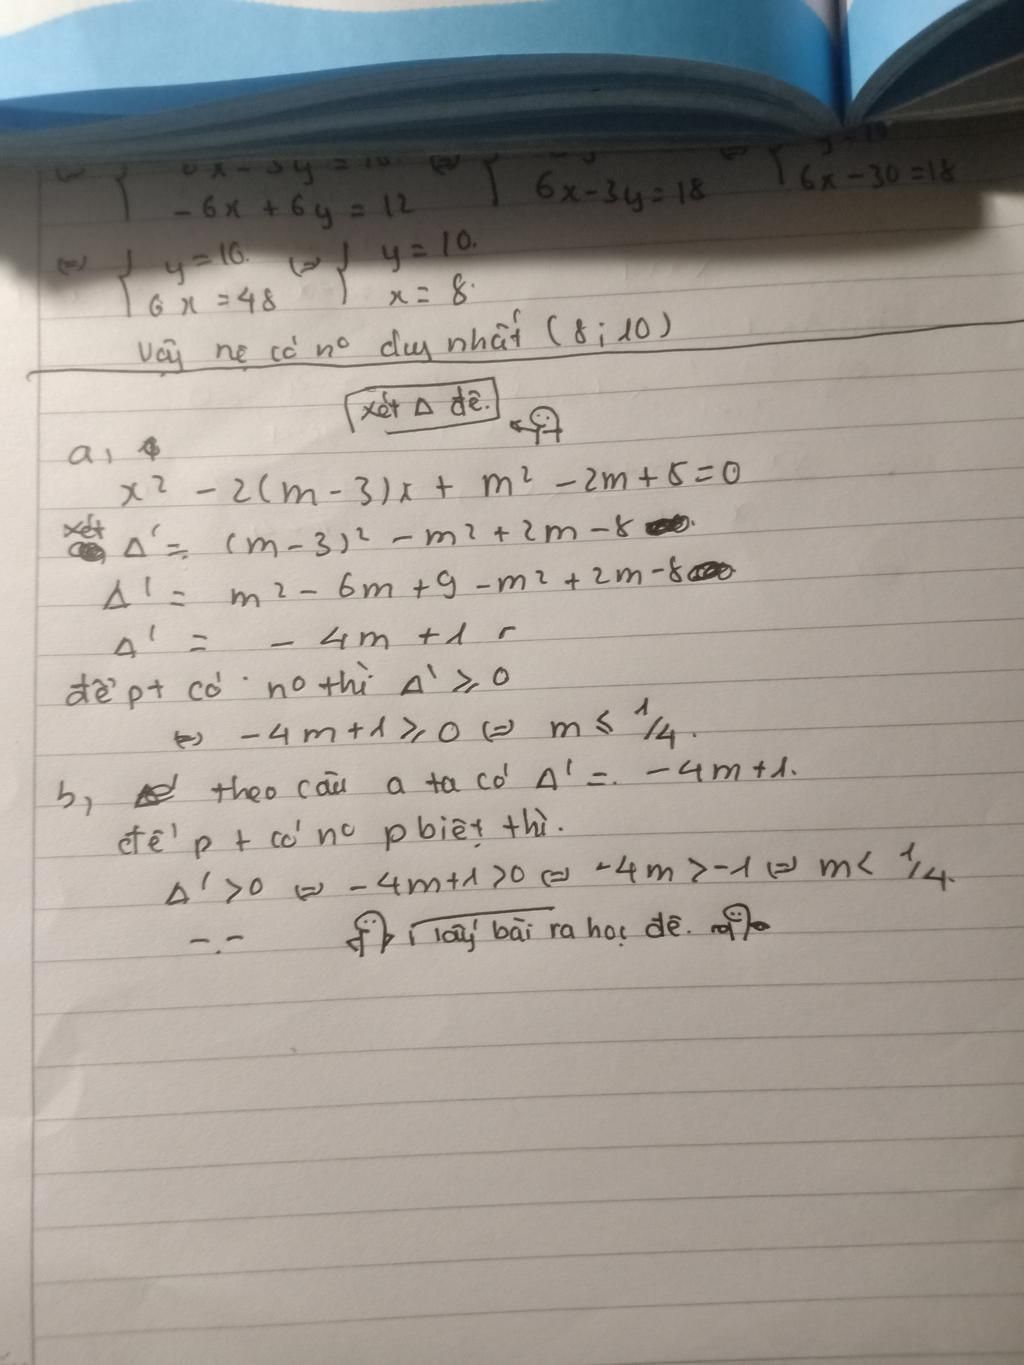 6x - 3y = 18 ⇔ { ⇔ { y = 10
{ -6x + 6y = 12 { 6x - 3y = 18 { 6x - 30 = 18
⇔ { y = 10. ⇔ { y = 10.
6x = 48 x = 8.
Vậy hệ có nº duy nhất (8; 10)
xét Δ đê.
a,
x² - 2(m - 3)x + m² - 2m + 8 = 0
xét Δ' = (m - 3)² - m² + 2m - 8
Δ' = m² - 6m + 9 - m² + 2m - 8
Δ' = - 4m + 1
để pt có nº thì Δ' ⩾ 0
⇔ -4m + 1 ⩾ 0 ⇔ m ⩽ 1/4.
b, theo câu a ta có Δ' = -4m + 1.
để pt có nº pbiệt thì.
Δ' > 0 ⇔ -4m + 1 > 0 ⇔ -4m > -1 ⇔ m < 1/4.
-.- lấy bài ra học đê.